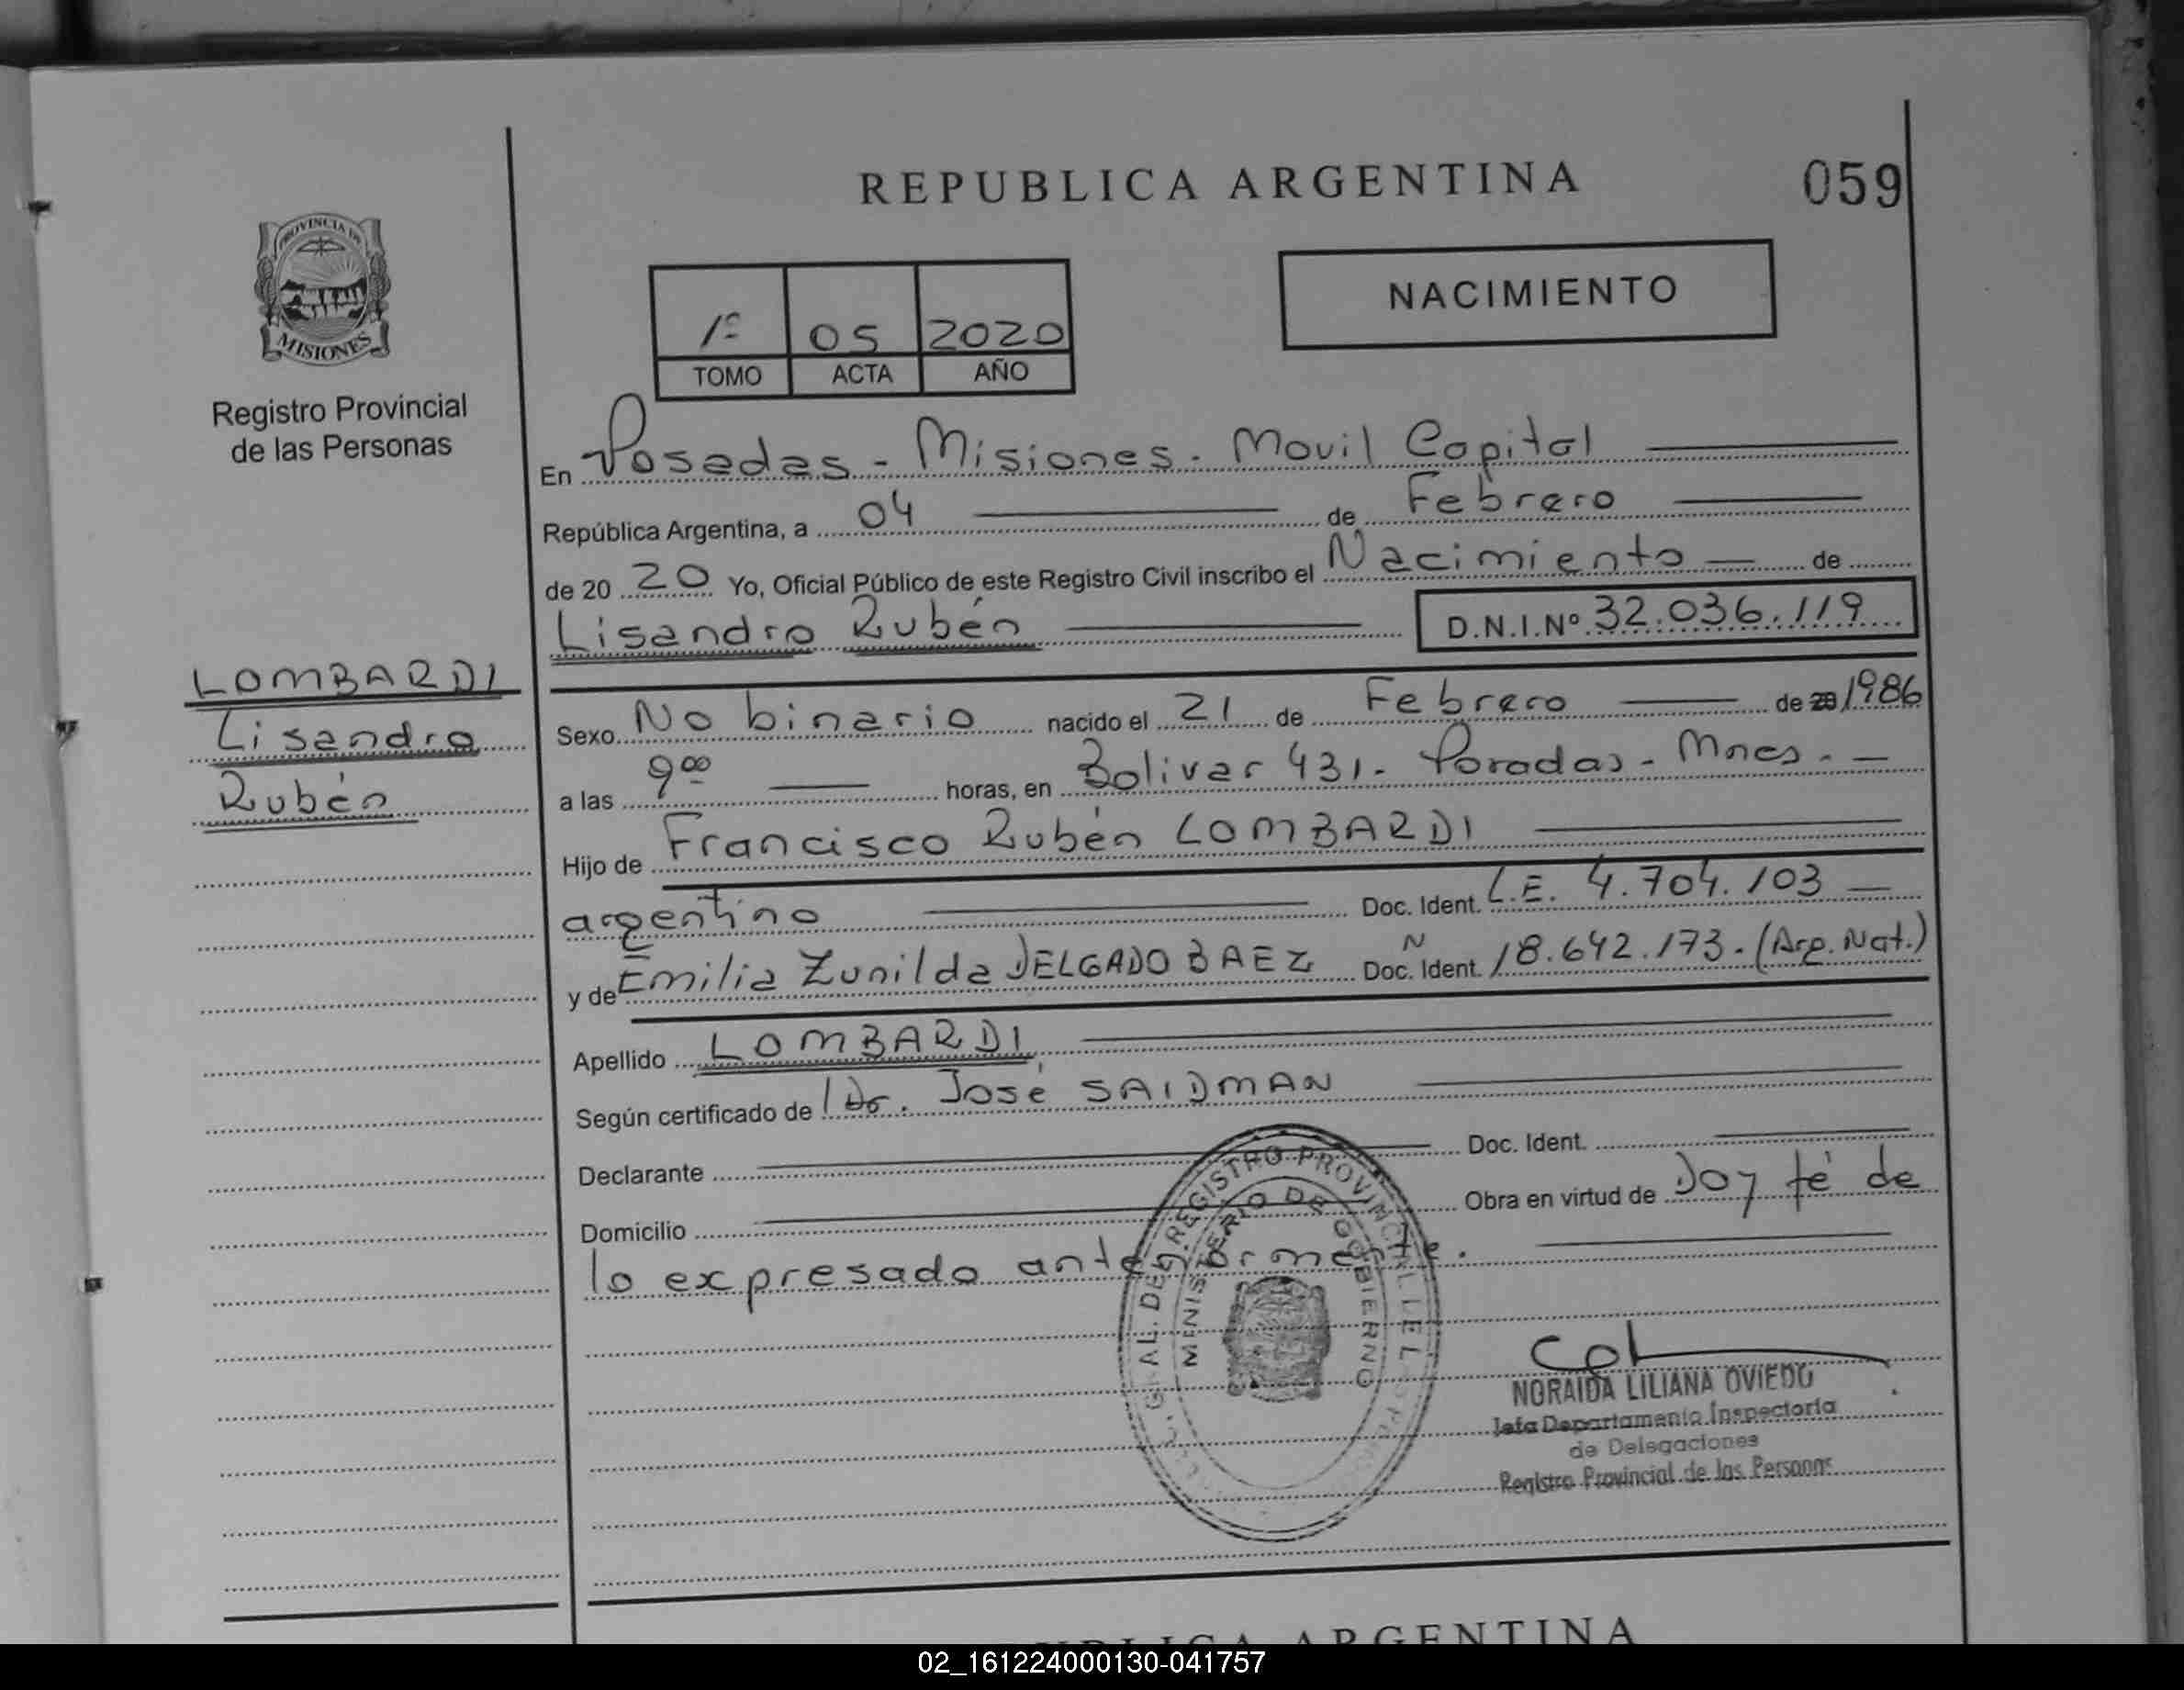 REPUBLICA ARGENTINA
059
PROVINCIA DE
MISIONES
Registro Provincial
de las Personas
1º 05 2020
TOMO ACTA AÑO
NACIMIENTO
En Posadas - Misiones - Movil Capital
República Argentina, a 04 de Febrero
de 20 20 Yo, Oficial Público de este Registro Civil inscribo el Nacimiento de
Lisandro Rubén D.N.I.Nº 32.036.119
LOMBARDI
Lisandro
Rubén
Sexo No binario nacido el 21 de Febrero de 20 1986
a las 9 00 horas, en Bolivar 431 - Posadas - Mnes. -
Hijo de Francisco Rubén LOMBARDI
argentino Doc. Ident. L.E. 4.704.103
y de Emilia Zunilda DELGADO BAEZ Doc. Ident. Nº 18.642.173 - (Arg. Nat.)
Apellido LOMBARDI
Según certificado de Dr. José SAIDMAN
Declarante Doc. Ident.
Domicilio Obra en virtud de Doy fé de
lo expresado anteriormente.
GRAL. DEL REGISTRO PROVINCIAL DE LAS PERSONAS
MINISTERIO DE GOBIERNO
NORAIDA LILIANA OVIEDO
Jefa Departamento Inspectoría
de Delegaciones
Registro Provincial de las Personas
REPUBLICA ARGENTINA
02_161224000130-041757